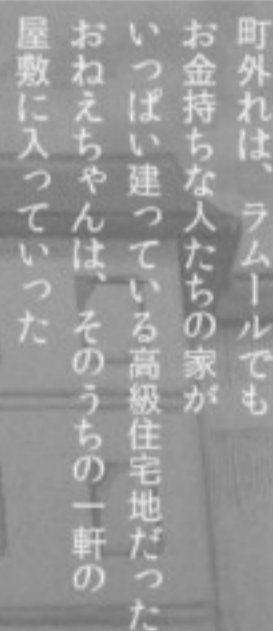 町外れは、ラムールでも
お金持ちな人たちの家が
いっぱい建っている高級住宅地だった
おねえちゃんは、そのうちの一軒の
屋敷に入っていった